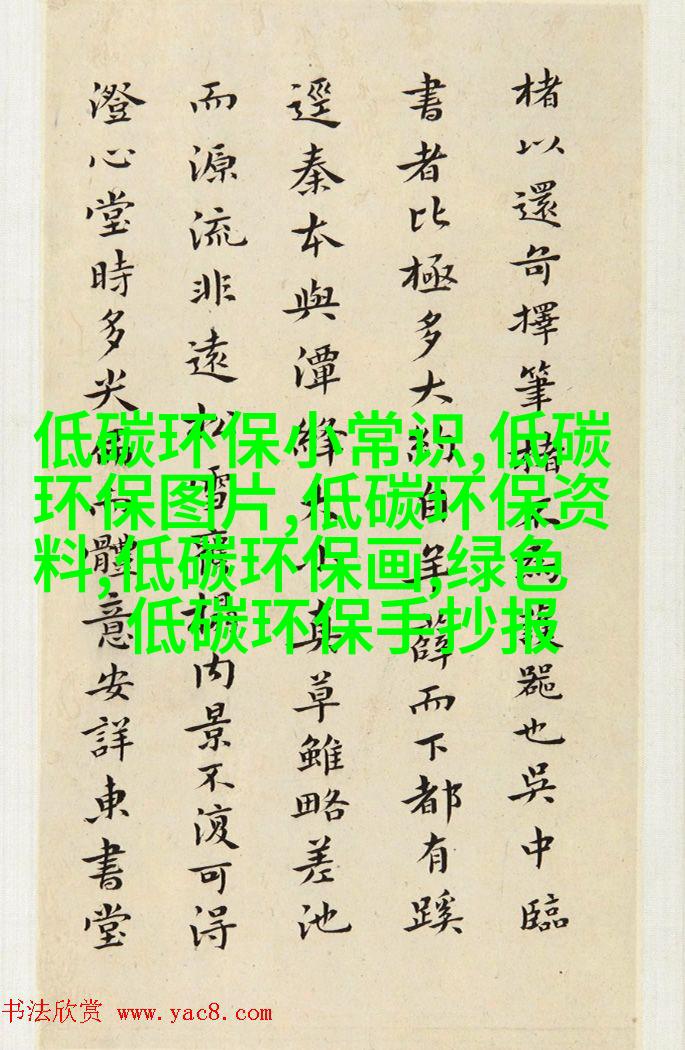 楮以還擇筆楮不為器也吳中臨
書者比極多大約自羊薛而下都有蹊
逕秦本與潭絳大小真草雖略差池
而源流非遠松雪齋楊內景不復可得
澄心堂時多尖體意安詳東書堂
低碳环保小常识,低碳
环保图片,低碳环保资
料,低碳环保画,绿色
低碳环保手抄报
书法欣赏 www.yac8.com